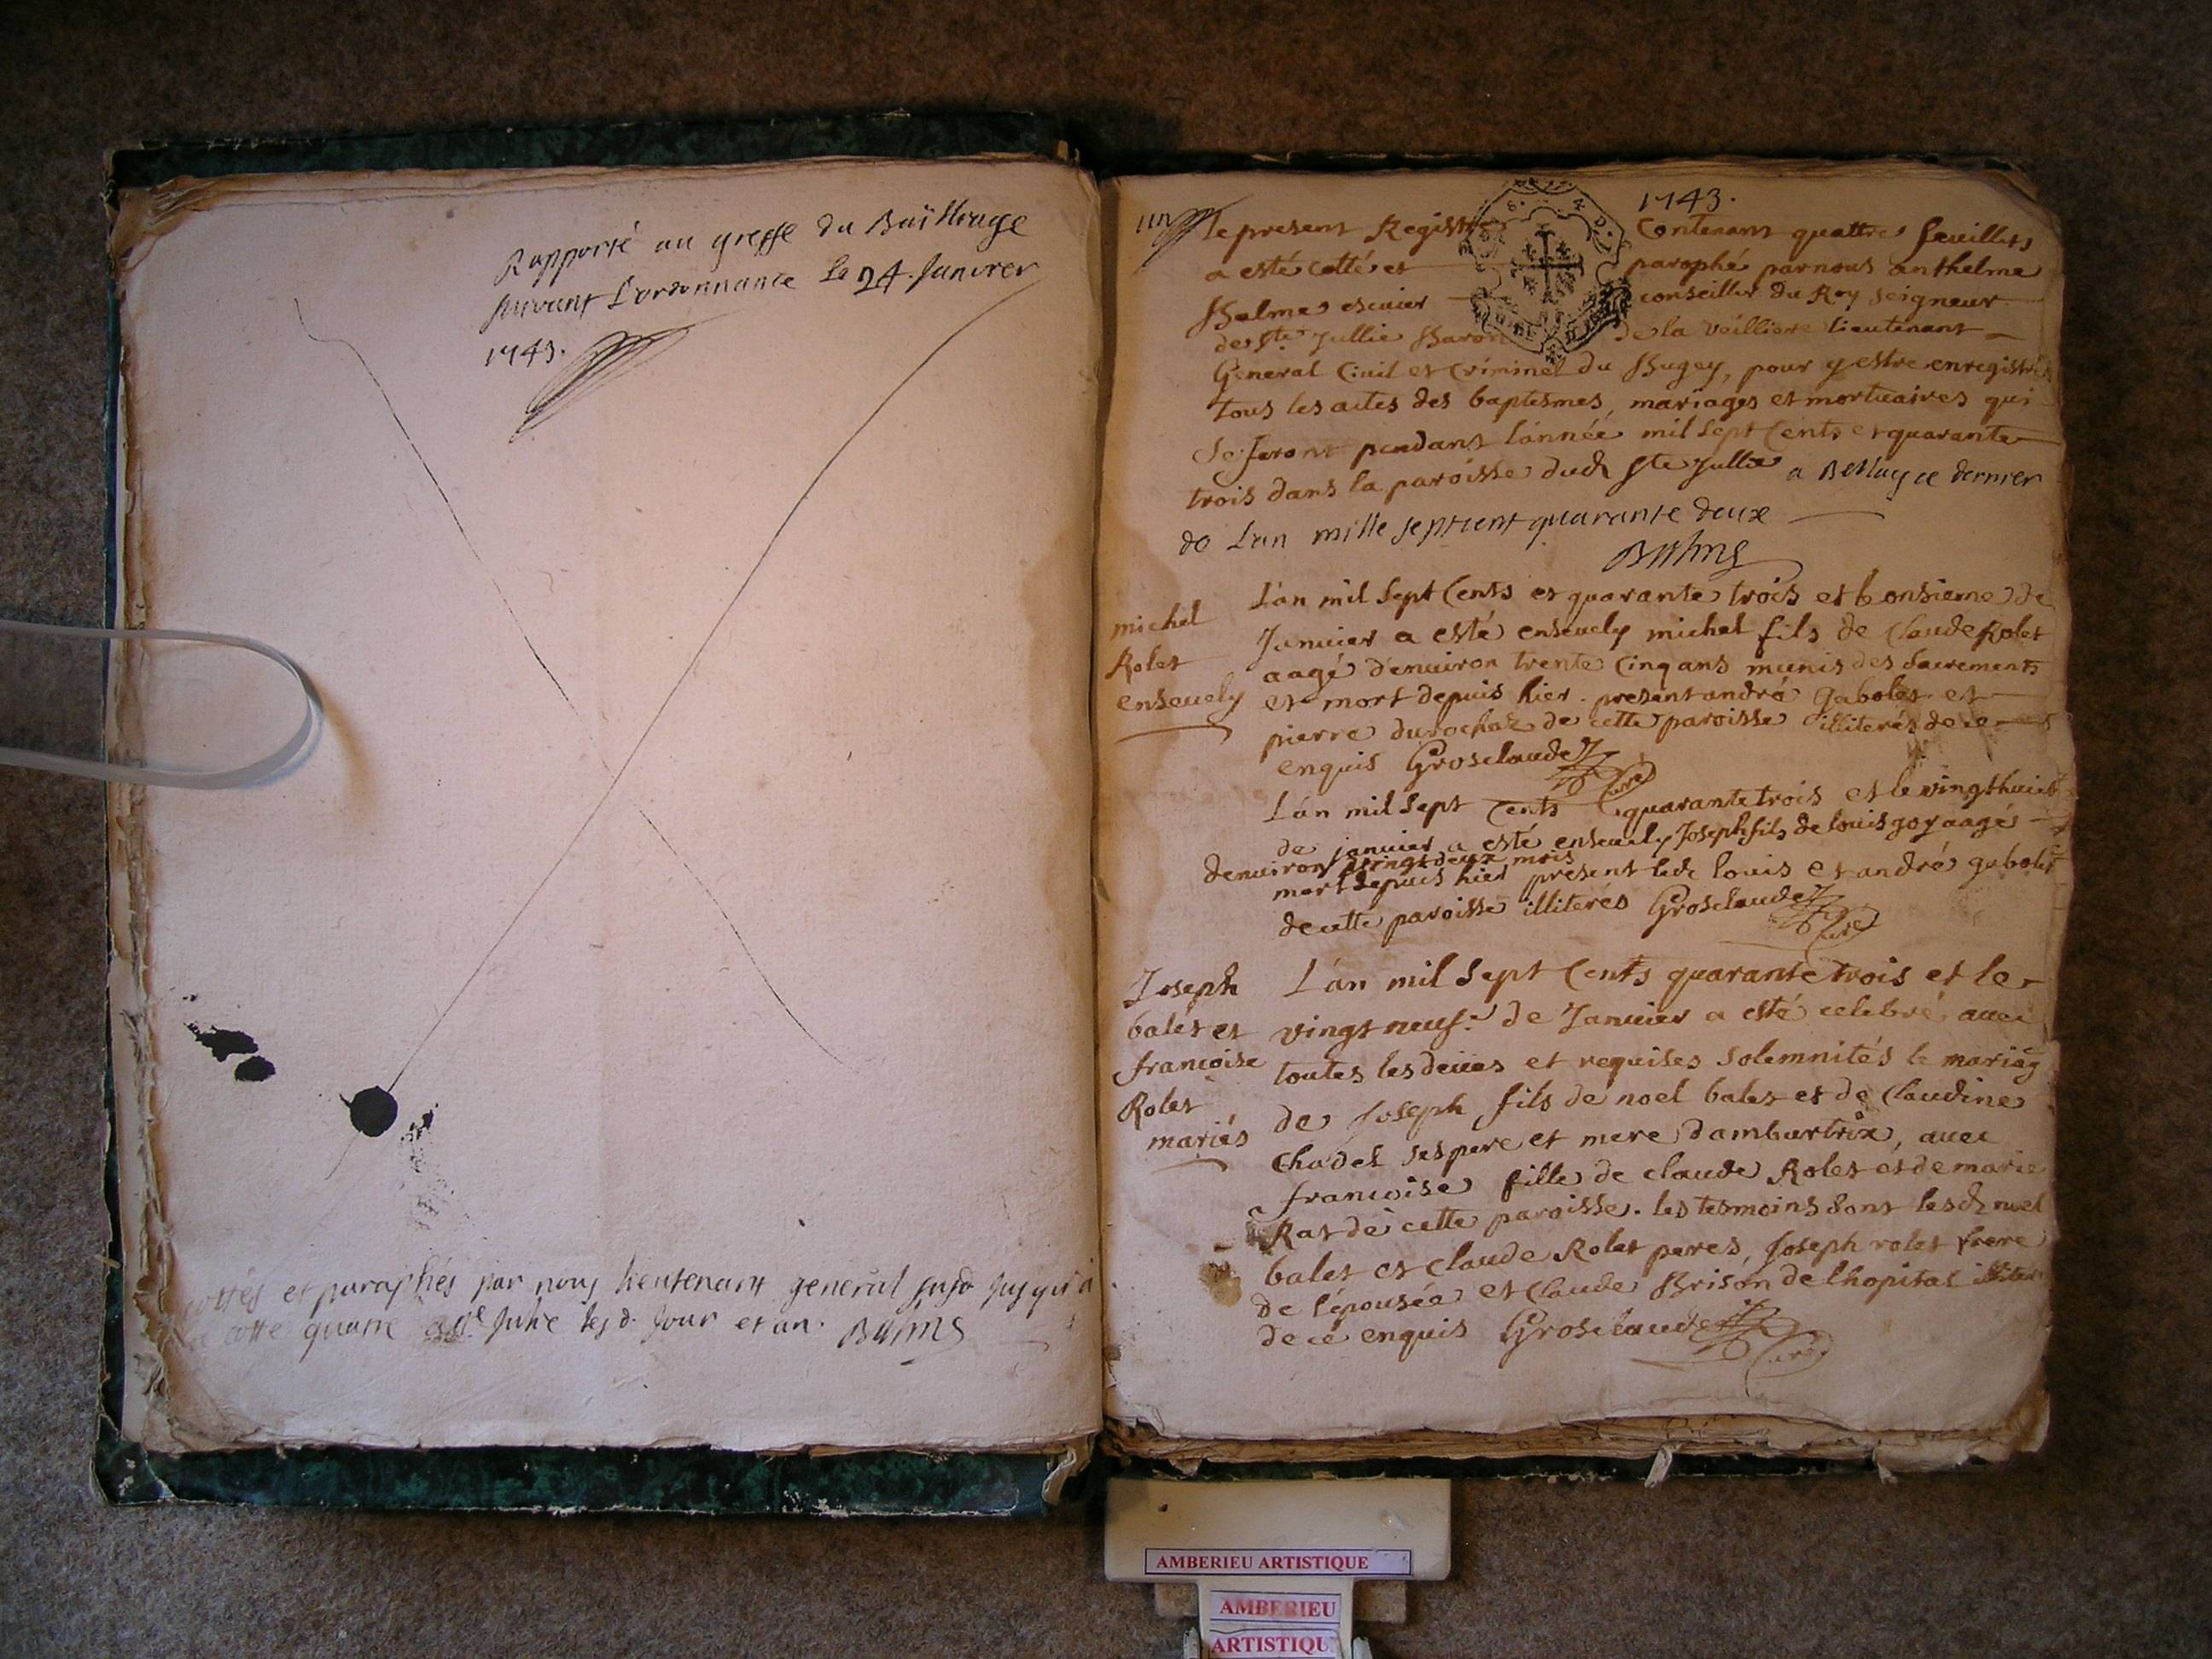 Rapporté au greffe du Bailliage
suivant L'ordonnance le 24. Janvier
1743.
cottés et paraphés par nous lieutenant general susd jusqu'a
la cotte quatre a Ste Julie lesd. jour et an. Balme
1743.
un le present Registre Contenant quattre feuillets
a esté cotté et parophé par nous anthelme
Balme escuier conseiller du Roy seigneur
de Ste Jullie Baron de la Veilliere lieutenant
General Civil et Criminel du Bugey, pour y estre enregistré
tous les actes des baptesmes, mariages et mortuaires qui
se feront pendant l'année mil sept Cents et quarante
trois dans la paroisse dud Ste Jullie a Bellay ce dernier
de L'an mille sept cent quarante deux
Balme
michel
Rolet
ensevely
L'an mil sept Cents et quarante trois et le onsieme de
Janvier a esté ensevely michel fils de Claude Rolet
aagé d'environ trente cinq ans munis des sacrements
et mort depuis hier. present andré Gabolet et
pierre durochat de cette paroisse illiterés de ce
enquis Grosclaude Curé
L'an mil sept Cents quarante trois et le vingt huict
de janvier a esté ensevely Joseph fils de louis goy aagés
denviron vingt deux mois
mort depuis hier present led louis et andré gabolet
de cette paroisse illiterés Grosclaude Curé
Joseph
balet et
francoise
Rolet
mariés
L'an mil sept Cents quarante trois et le
vingt neuf. de Janvier a esté celebré avec
toutes les deües et requises solemnités le mariag
de Joseph fils de noel balet et de Claudine
Chadel ses pere et mere d'ambutrix, avec
francoise fille de claude Rolet et de marie
Rat de cette paroisse. les tesmoins sont lesd noel
balet et claude Rolet peres, Joseph rolet frere
de l'épousée et Claude Brison de lhopital illiter
de cé enquis Grosclaude Curé
AMBERIEU ARTISTIQUE
AMBERIEU
ARTISTIQU